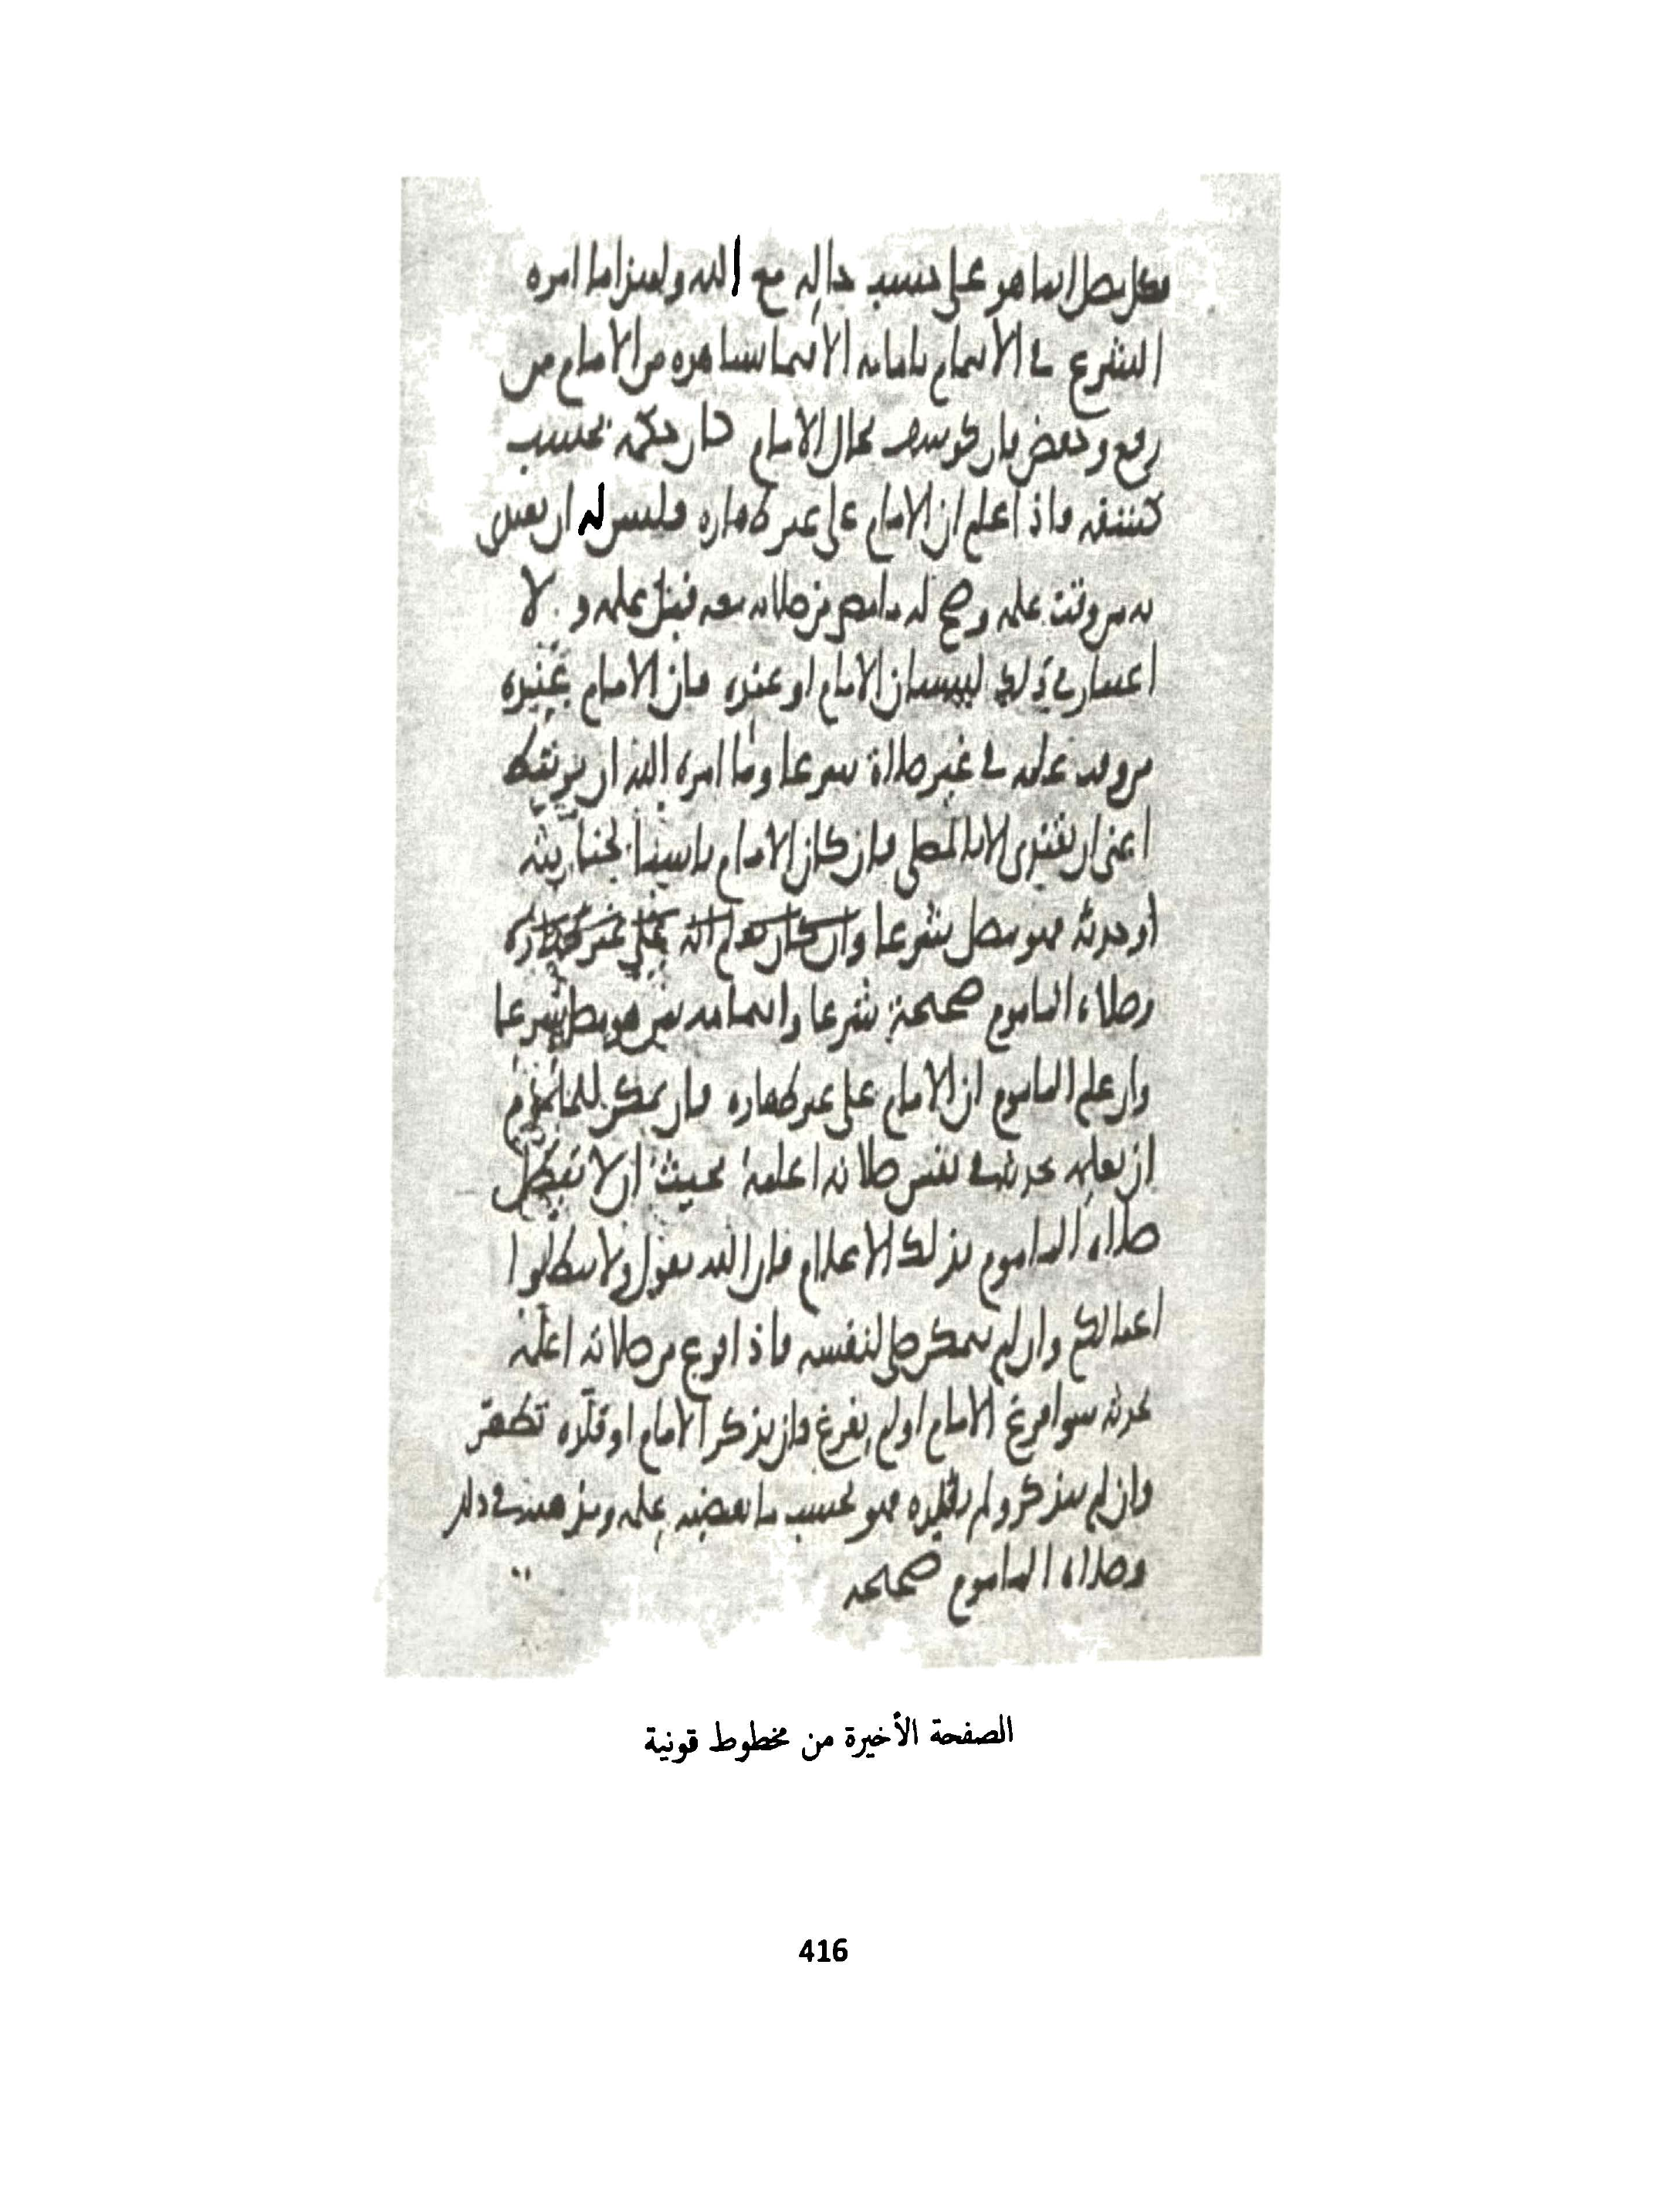 فكل مصل انما هو على حسب حاله مع الله ولهذا ما امره
الشرع في الائتمام بامامه الا فيما يشاهده من الامام من
رفع وخفض فان كوشف بحال الامام كان حكمه بحسب
كشفه فاذا علم ان الامام على غير طهاره فليس له ان يقتدى
به من وقت علمه وصح له ما مضى من صلاته معه قبل علمه ولا
اعتبار في ذلك لنسيان الامام او عمده فان الامام عنده
من وقت علمه في غير صلاة شرعا وما امره الله ان يرتبط
اعنى ان يقتدى الا بالمصلى فان كان الامام ناسيا لجنابته
او حدثه فهو مصل شرعا وان كان يعلم انه على غير طهاره
وصلاه الماموم صحيحة شرعا وائتمامه بمن هو مصل شرعا
وان علم الماموم ان الامام على غير طهاره فان تمكن للماموم
ان يعلمه بحدثه في نفس صلاته اعلمه بحيث ان لا تبطل
صلاه الماموم بذلك الاعلام فان الله يقول ولا تبطلوا
اعمالكم وان لم يتمكن صلى لنفسه فاذا فرغ من صلاته اعلمه
بحدثه سوا فرغ الامام او لم يفرغ فان تذكر الامام او قلده تطهر
وان لم يتذكر ولم يقلده فهو بحسب ما يقتضيه علمه ومذهبه في ذلك
وصلاه الماموم صحيحه
الصفحة الأخيرة من مخطوط قونية
416